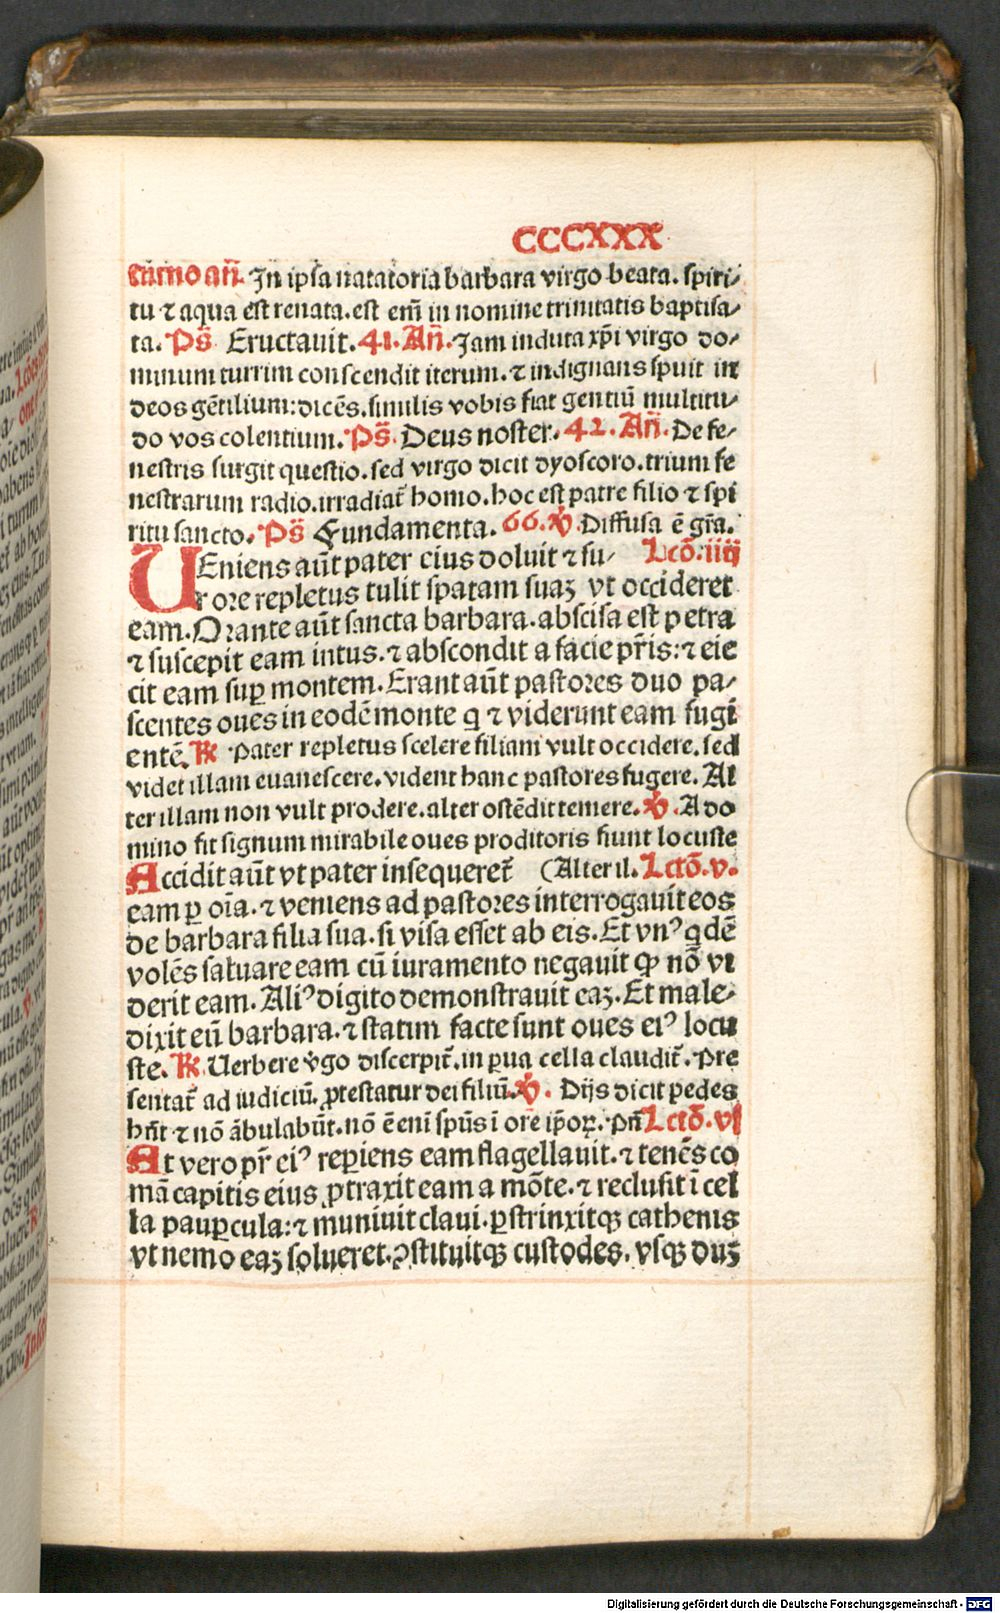 CCCXXX
cturno añ. In ipsa natatoria barbara virgo beata. spiri⸗
tu ⁊ aqua est renata. est em̄ in nomine trinitatis baptisa⸗
ta. Ps̄ Eructauit. 41. Añ. Iam induta xp̄i virgo do⸗
minum turrim conscendit iterum. ⁊ indignans spuit in
deos gētilium: dicēs. similis vobis fiat gentiū multitu⸗
do vos colentium. Ps̄. Deus noster. 42. Añ. De fe⸗
nestris surgit questio. sed virgo dicit dyoscoro. trium fe
nestrarum radio. irradiat̄ homo. hoc est patre filio ⁊ spi
ritu sancto. Ps̄ Fundamenta. 66. ℣ Diffusa ē gr̄a.
UEniens aūt pater eius doluit ⁊ su⸗ Lcō. iiij
r ore repletus tulit spatam suaꝫ vt occideret
eam. Orante aūt sancta barbara. abscisa est petra
⁊ suscepit eam intus. ⁊ abscondit a facie pr̄is: ⁊ eie
cit eam suꝑ montem. Erant aūt pastores duo pa⸗
scentes oues in eodē monte q ⁊ viderunt eam fugi
entē. ℟ Pater repletus scelere filiam vult occidere. sed
videt illam euanescere. vident hanc pastores fugere. Al
ter illam non vult prodere. alter ostēdit temere. ℣. A do
mino fit signum mirabile oues proditoris fiunt locuste
Accidit aūt vt pater insequeret̄ (Alter il. Lctō. v.
eam ꝑ oīa. ⁊ veniens ad pastores interrogauit eos
de barbara filia sua. si visa esset ab eis. Et vnꝰ qdē
volēs saluare eam cū iuramento negauit ꝙ nō vi
derit eam. Aliꝰ digito demonstrauit eaꝫ. Et male⸗
dixit eū barbara. ⁊ statim facte sunt oues eiꝰ locu
ste. ℟. Uerbere v̓go discerpit̄. in ꝑua cella claudit̄. Pre
sentat̄ ad iudiciū. ꝓtestatur dei filiū. ℣. Dijs dicit pedes
hn̄t ⁊ nō ābulabūt. nō ē eni̅ spūs ī ore ip̄oꝝ. Pñ Lctō. vi
At vero pr̄ eiꝰ reꝑiens eam flagellauit. ⁊ tenēs co
mā capitis eius ꝓtraxit eam a mōte. ⁊ reclusit ī cel
la pauꝑcula: ⁊ muniuit claui. ꝑstrinxitqꝫ cathenis
vt nemo eaꝫ solueret. ꝯstituitqꝫ custodes. vsqꝫ duꝫ
Digitalisierung gefördert durch die Deutsche Forschungsgemeinschaft - DFG